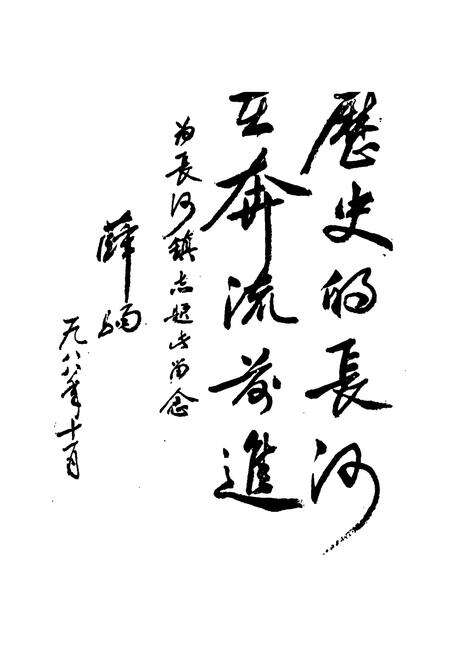 歷史的長河
在奔流前進
為長河鎮志題此留念
薛駒
一九八八年十一月